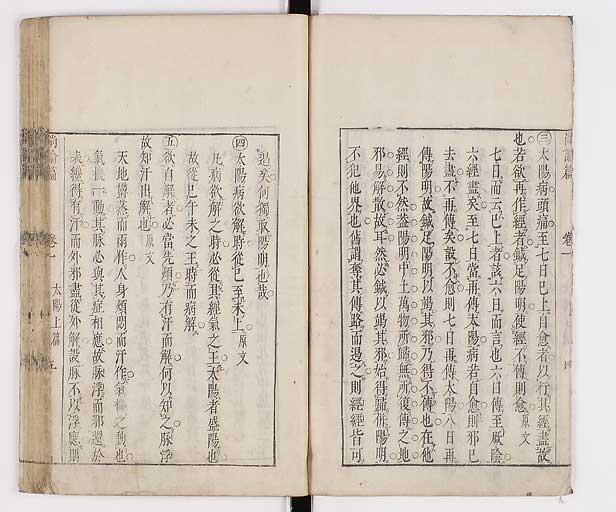 ㊂太陽病頭痛至七日已上自愈者以行其經盡故
也若欲再作經者鍼足陽明使經不傳則愈原文
七日而云已上者該六日而言也六日傳至厥陰
六經盡矣至七日當再傳太陽病若自愈則邪已
去盡不再傳矣設不愈則七日再傳太陽八日再
傳陽明故鍼足陽明以竭其邪乃得不傳也在他
經則不然葢陽明中土萬物所歸無所復傳之地
邪易解散故耳然必鍼以竭其邪始得歸併陽明
不犯他界也舊謂奪其傳路而遏之則經經皆可
尚論篇 卷一
遏矣何獨取陽明也哉
㊃太陽病欲解時從巳至未上原文
凡病欲解之時必從其經氣之王太陽者盛陽也
故從巳午未之王時而病解
㊄欲自解者必當先煩乃有汗而解何以知之脉浮
故知汗出解也原文
天地欝蒸而雨作人身煩悶而汗作氣機之動也
氣機一動其脉必與其症相應故脉浮而邪還於
表纔得有汗而外邪盡從外解設脉不以浮應則
尚論篇 卷一 太陽上篇 五